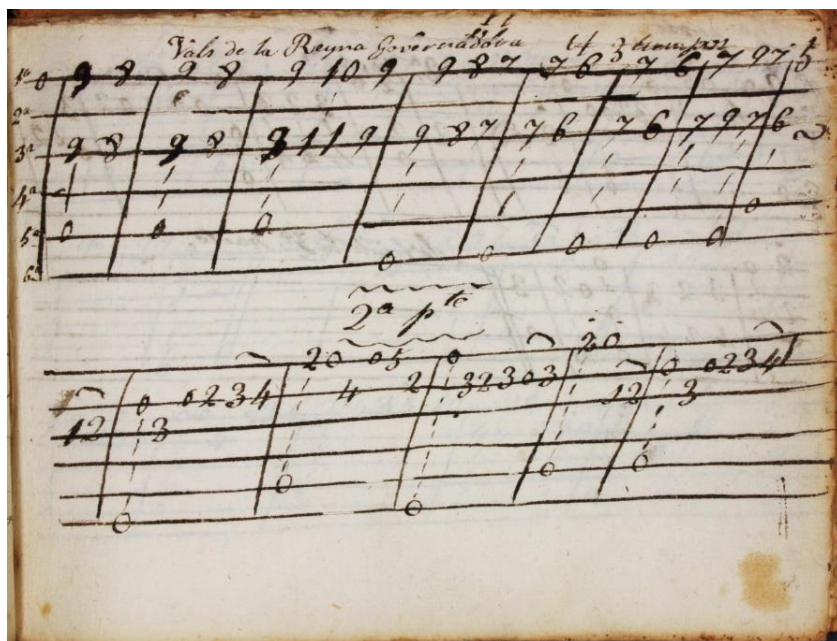 14
Vals de la Reyna Governadora 14 3 tiempos
1ª 0 9 8 9 8 9 10 9 9 8 7 7 6 7 6 7 9 7 5
2ª
3ª 9 8 9 8 9 11 9 9 8 7 7 6 7 6 7 9 7 6
4ª 0
5ª 0 0 0 0 0 0
6ª 0 0
2ª pte
2 0 0 5 0 2 0
0 0 2 3 4 4 2 3 2 3 0 3 0 0 2 3 4
1 2 3 1 2 3
0 0
0
0 0